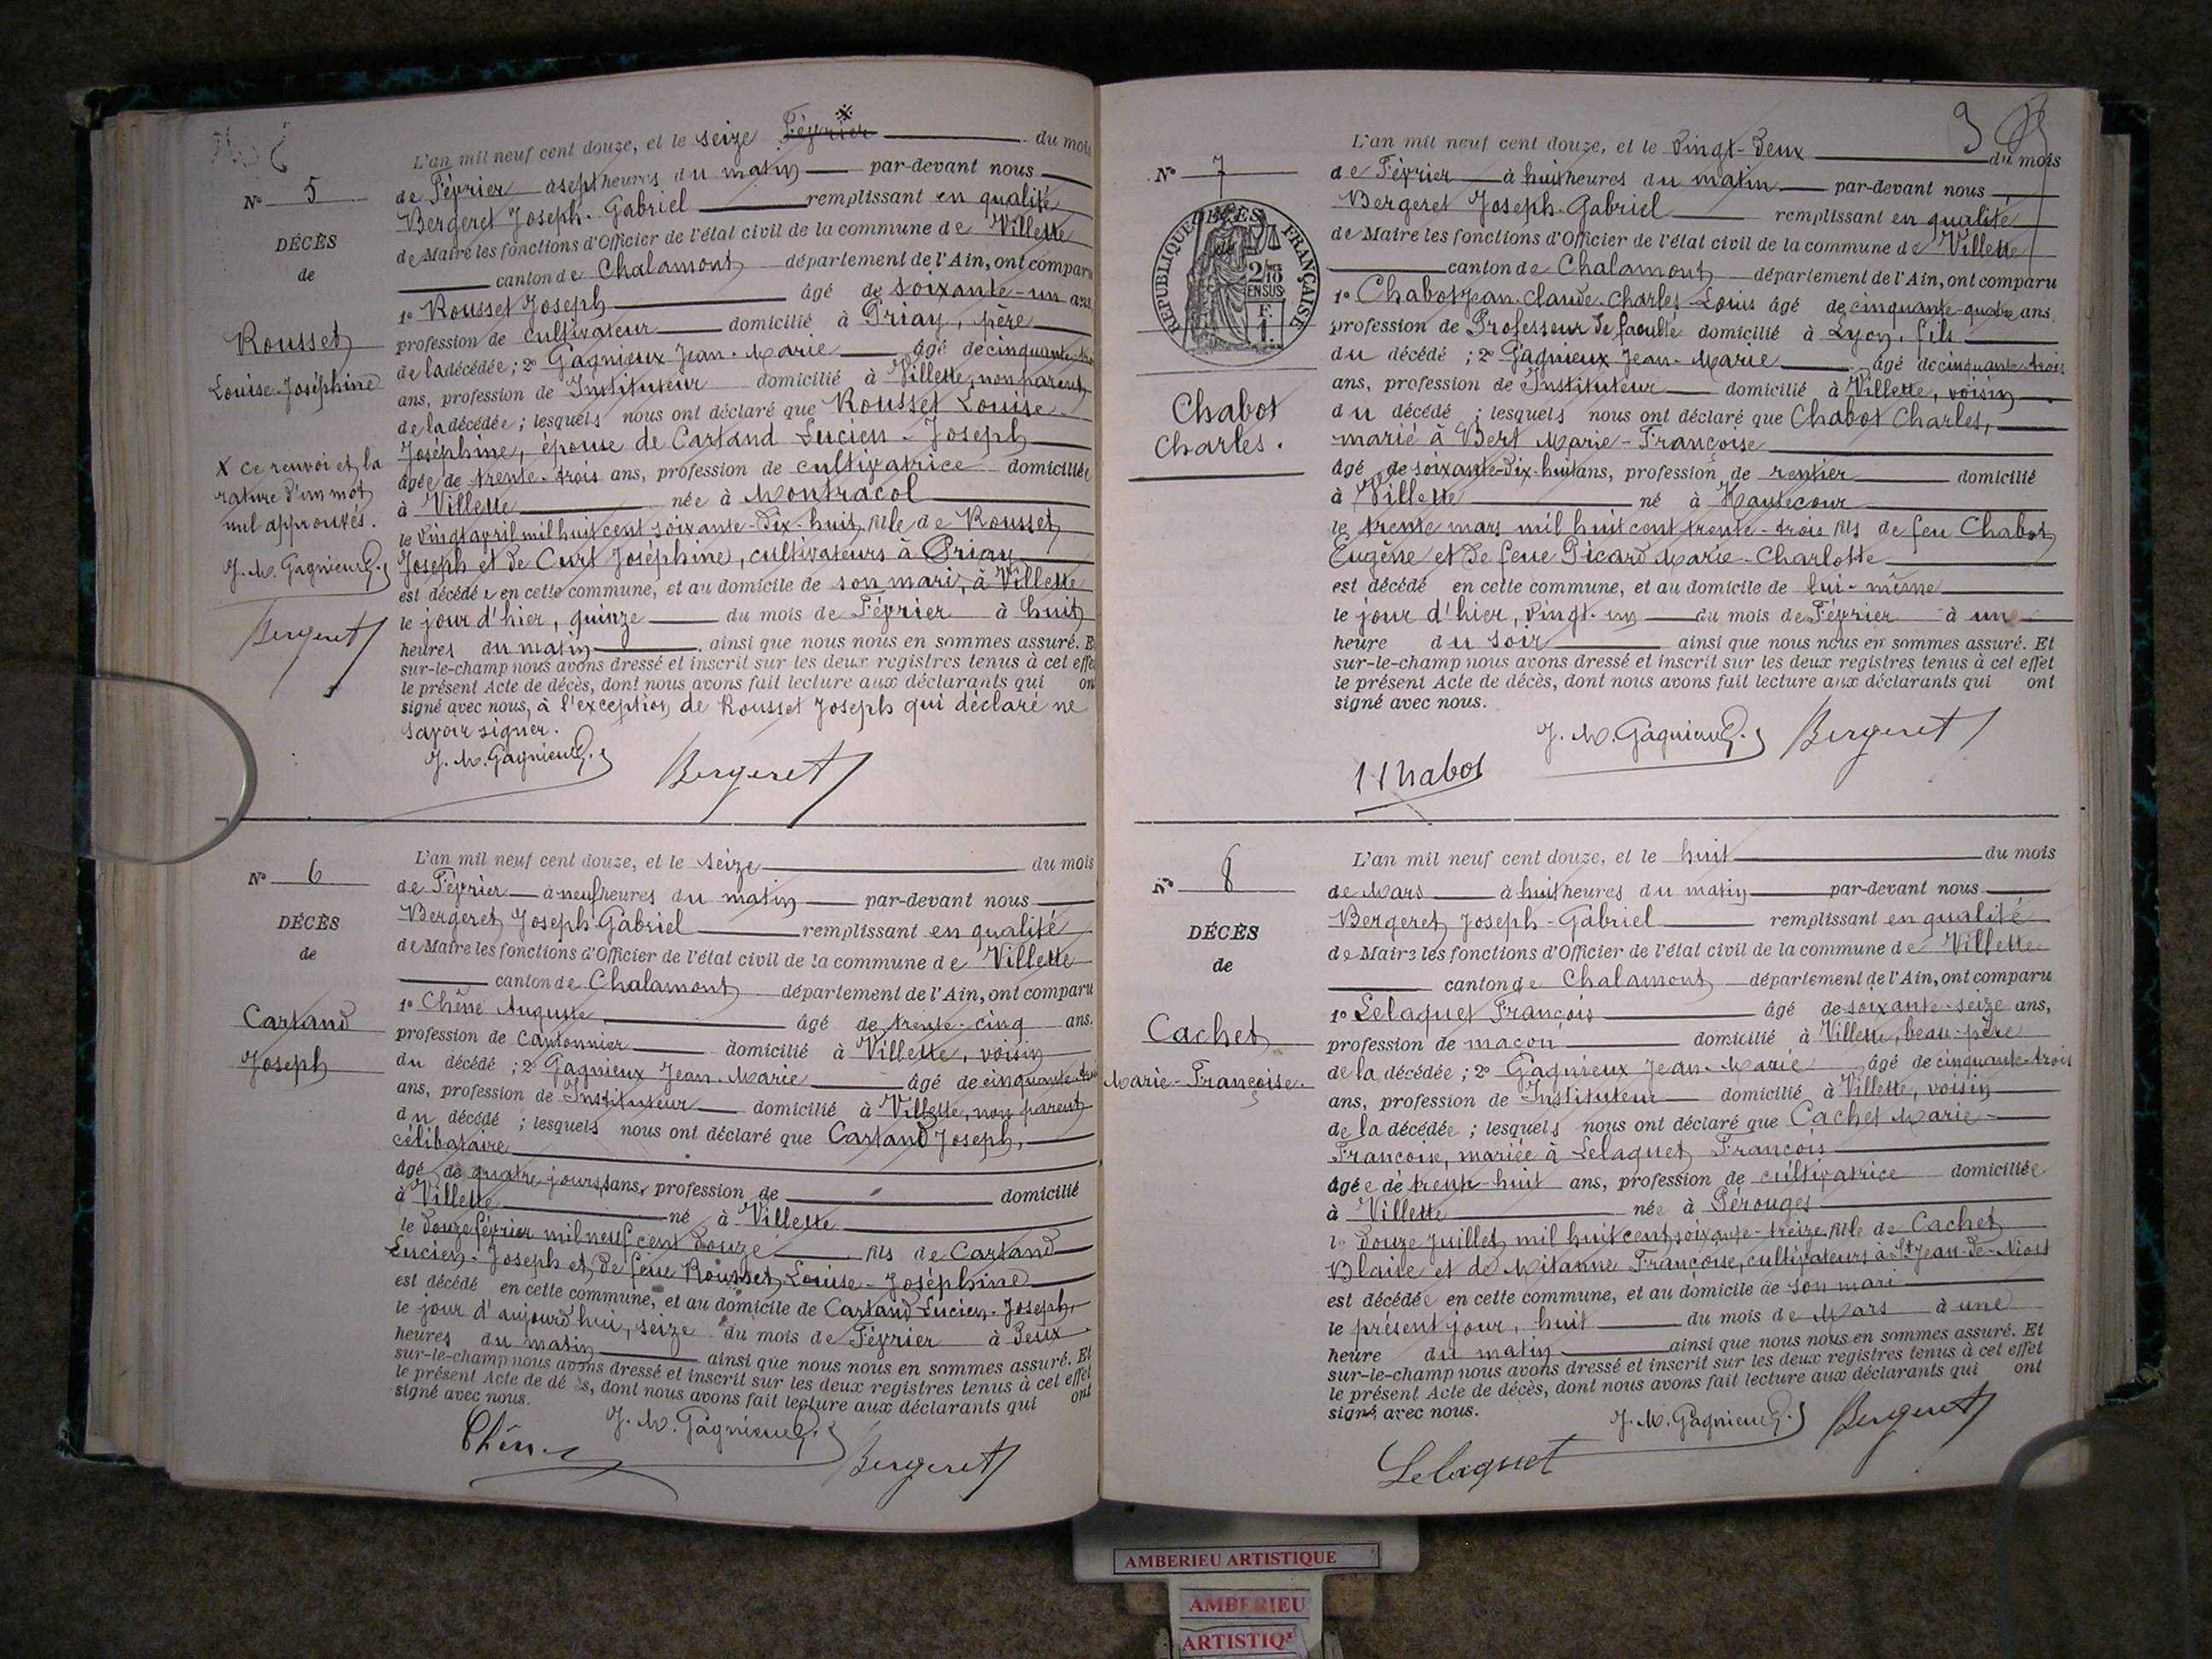 L'an mil neuf cent douze, et le seize Février ※ du mois
de Février à sept heures du matin par-devant nous
Bergeret Joseph-Gabriel remplissant en qualité
de Maire les fonctions d'Officier de l'état civil de la commune de Villette
canton de Chalamont département de l'Ain, ont comparu
1º Rousset Joseph âgé de soixante-un ans,
profession de cultivateur domicilié à Priay, père
de la décédée; 2º Gagnieux Jean-Marie âgé de cinquante-trois
ans, profession de Instituteur domicilié à Villette, non parent
de la décédée; lesquels nous ont déclaré que Rousset Louise
Joséphine, épouse de Cartand Lucien-Joseph
âgée de trente-trois ans, profession de cultivatrice domiciliée
à Villette née à Montracol
le vingt avril mil huit cent soixante-dix-huit, fille de Rousset
Joseph et de Curt Joséphine, cultivateurs à Priay
est décédée en cette commune, et au domicile de son mari, à Villette
le jour d'hier, quinze du mois de Février à huit
heures du matin ainsi que nous nous en sommes assuré. Et
sur-le-champ nous avons dressé et inscrit sur les deux registres tenus à cet effet
le présent Acte de décès, dont nous avons fait lecture aux déclarants qui ont
signé avec nous, à l'exception de Rousset Joseph qui déclaré ne
savoir signer.
J. M. Gagnieux Bergeret
Nº 5
DÉCÈS
de
Rousset
Louise-Joséphine
X Ce renvoi et la
rature d'un mot
nul approuvés.
J. M. Gagnieux
Bergeret
Nº 6
DÉCÈS
de
Cartand
Joseph
L'an mil neuf cent douze, et le seize du mois
de Février à neuf heures du matin par-devant nous
Bergeret Joseph-Gabriel remplissant en qualité
de Maire les fonctions d'Officier de l'état civil de la commune de Villette
canton de Chalamont département de l'Ain, ont comparu
1º Chêne Auguste âgé de trente-cinq ans.
profession de Cantonnier domicilié à Villette, voisin
du décédé; 2º Gagnieux Jean-Marie âgé de cinquante-trois
ans, profession de Instituteur domicilié à Villette, non parent
du décédé; lesquels nous ont déclaré que Cartand Joseph,
célibataire
âgé de quatre jours, ans, profession de domicilié
à Villette né à Villette
le douze février mil neuf cent douze fils de Cartand
Lucien-Joseph et de feue Rousset Louise-Joséphine
est décédé en cette commune, et au domicile de Cartand Lucien-Joseph,
le jour d'aujourd'hui, seize du mois de Février à deux
heures du matin ainsi que nous nous en sommes assuré. Et
sur-le-champ nous avons dressé et inscrit sur les deux registres tenus à cet effet
le présent Acte de dé s, dont nous avons fait lecture aux déclarants qui ont
signé avec nous.
Chêne J. M. Gagnieux Bergeret
9
Nº 7
DÉCÈS
de
RÉPUBLIQUE FRANÇAISE
2/10 EN SUS
1 F.
Chabot
Charles.
L'an mil neuf cent douze, et le vingt-deux du mois
de Février à huit heures du matin par-devant nous
Bergeret Joseph-Gabriel remplissant en qualité
de Maire les fonctions d'Officier de l'état civil de la commune de Villette
canton de Chalamont département de l'Ain, ont comparu
1º Chabot Jean-Claude-Charles-Louis âgé de cinquante-quatre ans,
profession de Professeur de faculté domicilié à Lyon, fils
du décédé; 2º Gagnieux Jean-Marie âgé de cinquante-trois
ans, profession de Instituteur domicilié à Villette, voisin
du décédé; lesquels nous ont déclaré que Chabot Charles,
marié à Bert Marie-Françoise
âgé de soixante-dix-huit ans, profession de rentier domicilié
à Villette né à Hautecour
le trente mars mil huit cent trente-trois fils de feu Chabot
Eugène et de feue Picard Marie-Charlotte
est décédé en cette commune, et au domicile de lui-même
le jour d'hier, vingt-un du mois de Février à une
heure du soir ainsi que nous nous en sommes assuré. Et
sur-le-champ nous avons dressé et inscrit sur les deux registres tenus à cet effet
le présent Acte de décès, dont nous avons fait lecture aux déclarants qui ont
signé avec nous.
J. M. Gagnieux Bergeret
Chabot
Nº 8
DÉCÈS
de
Cachet
Marie-Françoise.
L'an mil neuf cent douze, et le huit du mois
de Mars à huit heures du matin par-devant nous
Bergeret Joseph-Gabriel remplissant en qualité
de Maire les fonctions d'Officier de l'état civil de la commune de Villette
canton de Chalamont département de l'Ain, ont comparu
1º Lelaquet François âgé de soixante-seize ans,
profession de maçon domicilié à Villette, beau-père
de la décédée; 2º Gagnieux Jean-Marie âgé de cinquante-trois
ans, profession de Instituteur domicilié à Villette, voisin
de la décédée; lesquels nous ont déclaré que Cachet Marie-
Françoise, mariée à Lelaquet François
âgée de trente-huit ans, profession de cultivatrice domiciliée
à Villette née à Pérouges
le douze Juillet mil huit cent soixante-treize, fille de Cachet
Blaise et de Mitanne Françoise, cultivateurs à St Jean-de-Niost
est décédée en cette commune, et au domicile de son mari
le présent jour, huit du mois de Mars à une
heure du matin ainsi que nous nous en sommes assuré. Et
sur-le-champ nous avons dressé et inscrit sur les deux registres tenus à cet effet
le présent Acte de décès, dont nous avons fait lecture aux déclarants qui ont
signé avec nous.
J. M. Gagnieux Bergeret
Lelaquet
AMBERIEU ARTISTIQUE
AMBERIEU
ARTISTIQ